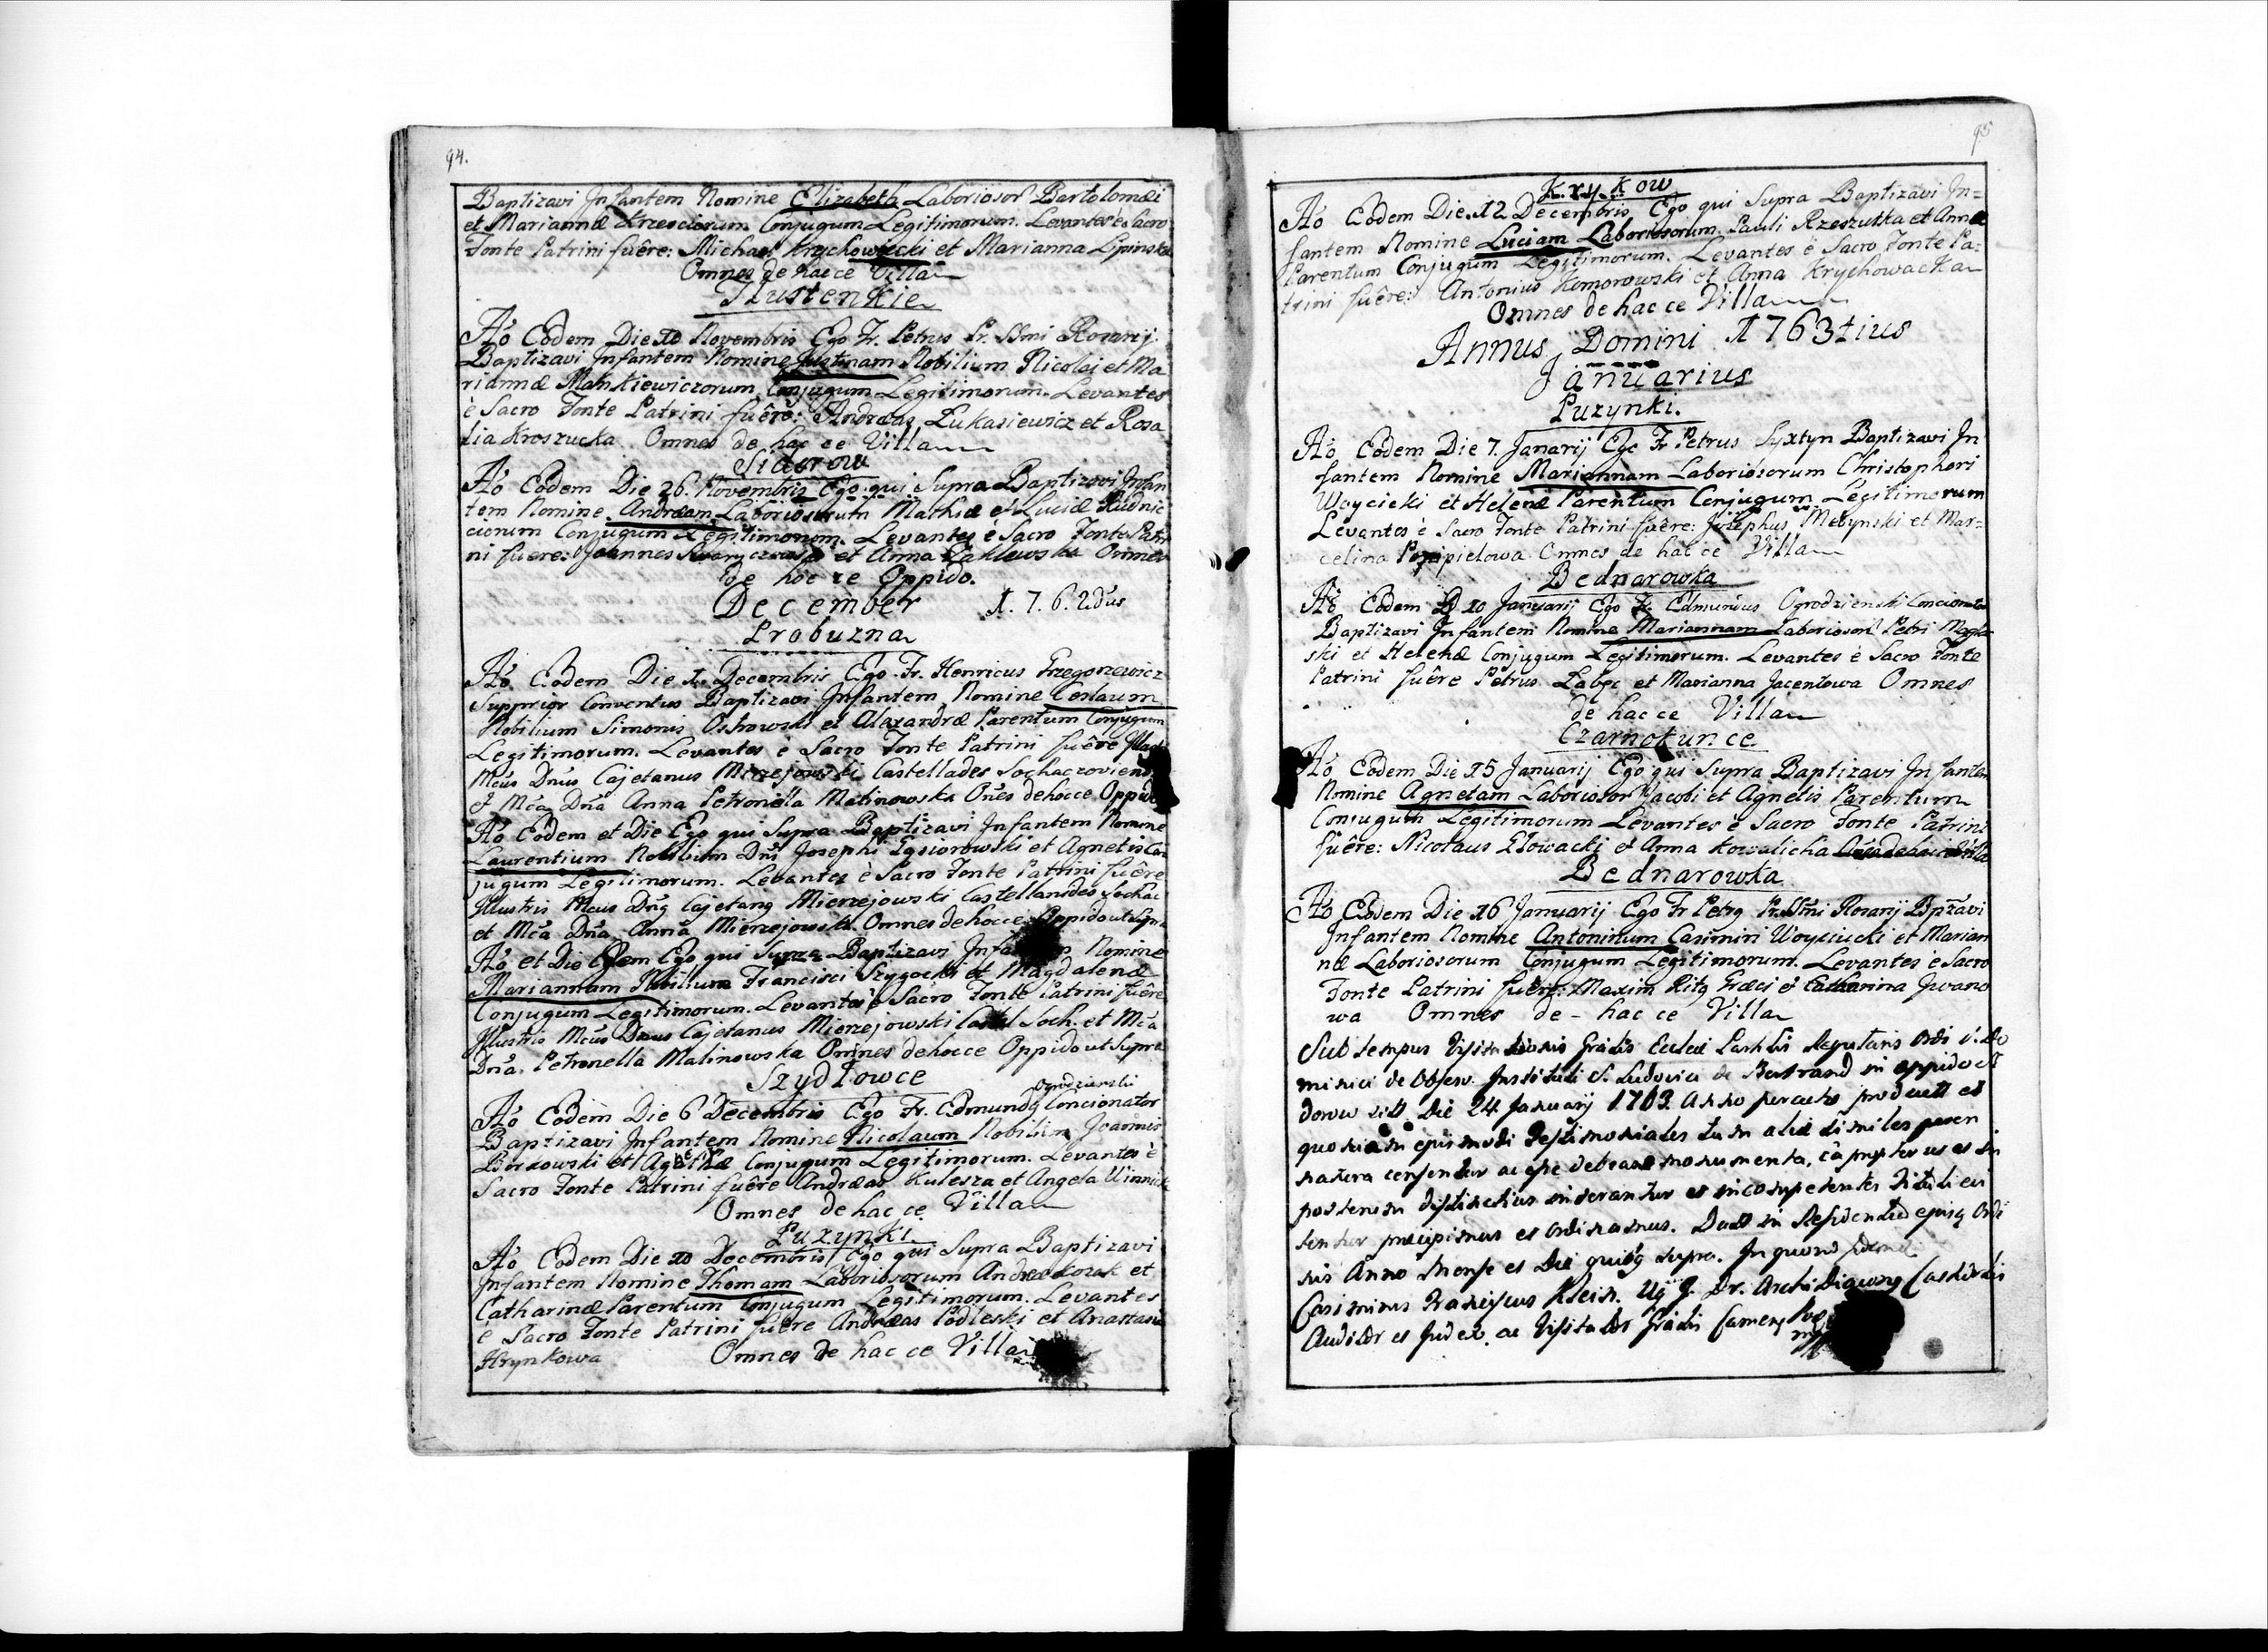 94.
Baptizavi Infantem Nomine Elizabeth Laboriosor Bartolomæi
et Mariannæ Krzesciorum Conjugum Legitimorum. Levantes è Sacro
Fonte Patrini fuêre: Michael Krychowiecki et Marianna Lipinska
Omnes de hacce Villa
Tlustenkie
Ao Eodem Die 10 Novembris Ego Fr. Petrus Pr. SSmi Rosarij
Baptizavi Infantem Nomine Justinam Nobilium Nicolai et Ma
riannæ Mankiewiczorum Conjugum Legitimorum. Levantes
è Sacro Fonte Patrini fuêre: Andræas Łukasiewicz et Rosa
lia Kroszucka Omnes de hac ce Villa
Sidorow
Ao Eodem Die 26. Novembris Ego qui Supra Baptizavi Infan
tem Nomine Andræam Laboriosorum Mathiæ et Luciæ Rudnic
ciorum Conjugum Legitimorum. Levantes è Sacro Fonte Patri
ni fuere: Joannes et Anna Zaklewska Omnes
de hoc ce Oppido.
December 1.7.6.2dus
Probuzna
Ao Eodem Die 1. Decembris Ego Fr. Henricus Grzegorzewicz
Supprior Conventus Baptizavi Infantem Nomine
Nobilium Simonis Ostrowski et Alexandræ Parentum Conjugum
Legitimorum. Levantes è Sacro Fonte Patrini fuêre
Mcus Dnus Cajetanus Mierzejowski Castellades
et Mca Dna Anna Petronella Malinowska Oñes dehocce Oppido
Ao Eodem et Die Ego qui Supra Baptizavi Infantem Nomine
Laurentium Nobilium Dñi Josephi Gąsiorowski et Agnetis Con
jugum Legitimorum. Levantes è Sacro Fonte Patrini fuêre
Illustris Mcus Dnus Cajetanus Mierzejowski Castellanides Sochac
et Mca Dna Anna Mierzejowska Omnes dehocce Oppido ut Supra
Ao et Die Eodem Ego qui Supra Baptizavi Nomine
Mariannam Nobilium Francisci Szygocki et Magdalenæ
Conjugum Legitimorum. Levantes è Sacro Fonte Patrini fuêre
Illustris Mcus Dnus Cajetanus Mierzejowski Castel Soch. et Mca
Dna. Petronella Malinowska Omnes dehocce Oppido ut Supra
Szydłowce
Ogrodzienski
Ao Eodem Die 6 Decembris Ego Fr. Edmundus Concionator
Baptizavi Infantem Nomine Nicolaum Nobilium Joannis
Borkowski et Agathæ Conjugum Legitimorum. Levantes è
Sacro Fonte Patrini fuêre Andræas Kulesza et Angela Winnick
Omnes de hac ce Villa
Puzynki.
Ao Eodem Die 10 Decembris Ego qui Supra Baptizavi
Infantem Nomine Thomam Laboriosorum Andreæ Kozak et
Catharinæ Parentum Conjugum Legitimorum. Levantes
è Sacro Fonte Patrini fuêre Andræas Podleski et Anastasia
Hrynkowa Omnes de hac ce Villa
95
Krykow
Ao Eodem Die. 12 Decembris Ego qui Supra Baptizavi In=
fantem Nomine Luciam Laboriosorum Pauli Rzeszutka et Annæ
Parentum Conjugum Legitimorum. Levantes è Sacro Fonte Pa:
trini fuêre: Antonius Komorowski et Anna Krychowacka
Omnes de hac ce Villa
Annus Domini 1763tius
Januarius
Puzynki.
Ao Eodem Die 7. Janarij Ego Fr Petrus Syxtyn Baptizavi In
fantem Nomine Mariannam Laboriosorum Christophori
Woycicki et Helenæ Parentum Conjugum Legitimorum
Levantes è Sacro Fonte Patrini fuêre: Josephus Melynski et Mar=
celina Popipielowa Omnes de hac ce Villa
Bednarowka
Ao Eodem D 10 Januarij Ego Fr. Edmundus Ogrodzienski Concionator
Baptizavi Infantem Nomine Mariannam Laboriosor Petri
ski et Helenæ Conjugum Legitimorum. Levantes è Sacro Fonte
Patrini fuêre Petrus Labęc et Marianna Jacentowa Omnes
de hac ce Villa
Czarnokunce.
Ao Eodem Die 15 Januarij Ego qui Supra Baptizavi Infantem
Nomine Agnetam Laboriosor Jacobi et Agnetis Parentum
Conjugum Legitimorum Levantes è Sacro Fonte Patrini
fuêre: Nicolaus Głowacki et Anna Kowalicha
Bednarowka
Ao Eodem Die 16 Januarij Ego Fr Petrus Pr. SSmi Rosarij Bpzavi
Infantem Nomine Antoninum Casimiri Woyciucki et Marian
næ Laboriosorum Conjugum Legitimorum. Levantes è Sacro
Fonte Patrini fuêre: Maxim Ritus Græci et Catharina Iwano
wa Omnes de-hac ce Villa
Sub tempus Visitationis Gnalis Ecclæ Parhlis Regularis Ordi S. Do
minici de Observ. Instituti S. Ludovici de Bertrand in oppido
Die 24 January 1763 Anno
quoniam ejusmodi Testimoniales tum aliæ similes
natura censentur ac esse debeant monumenta,
postenum distinctius inserantur et in competentes
præcipimus et ordinamus. Datt in Residentia ejusq Ordi
nis Anno Mense et Die quibq supra. In quorum fidem
Casimirus Franciscus Klein. Archi Diaconus
Auditor et Judex. ac Visitator Gnalis